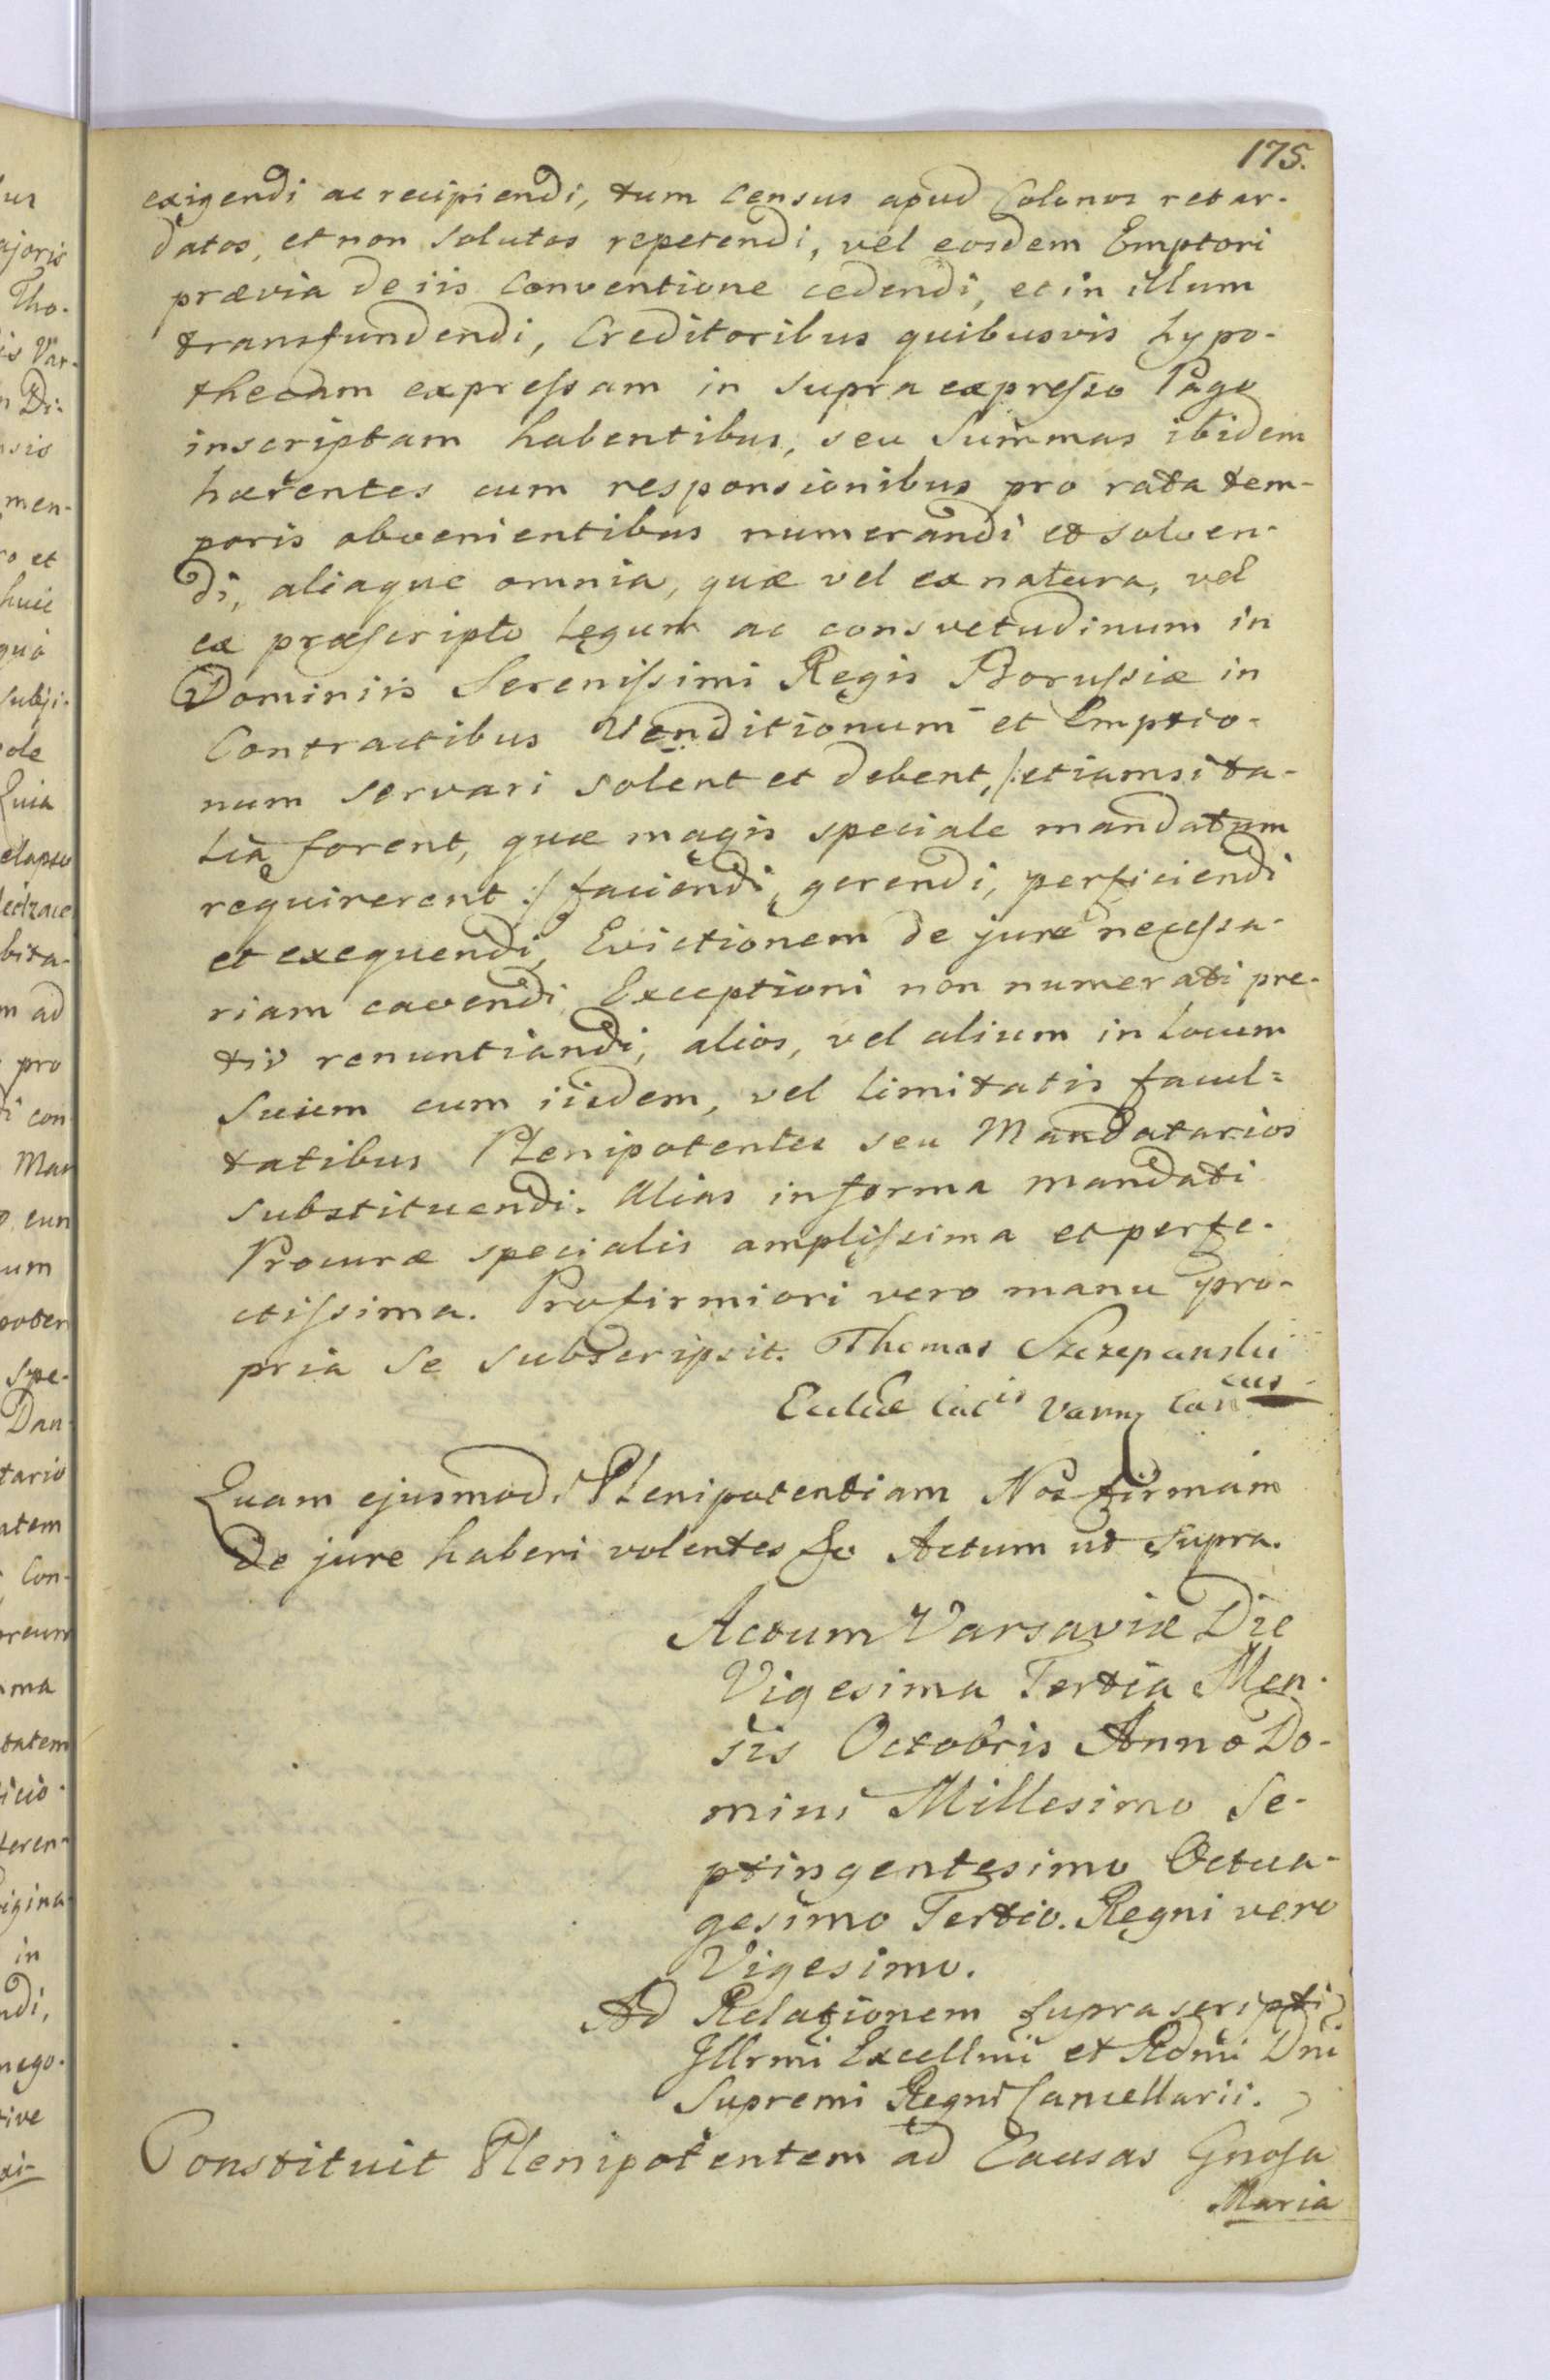 175.
exigendi ac recipiendi, tum Census apud Colonos retar-
datos, et non solutos repetendi, vel eosdem Emptori
prævia de iis Conventione cedendi, et in illum
transfundendi, Creditoribus quibusvis hypo-
thecam expressam in supra expresso Pago
inscriptam habentibus, seu Summas ibidem
hærentes cum responsionibus pro rata tem-
poris obvenientibus numerandi et solven-
di, aliaque omnia, quæ vel ex natura, vel
ex præscripto Legum ac consvetudinum in
Dominiis Serenissimi Regis Borussiæ in
Contractibus Venditionum et Emptio-
num servari solent et debent, /:etiamsi ta-
lia forent, quæ magis speciale mandatum
requirerent:/ faciendi, gerendi, perficiendi
et exequendi, Evictionem de jure necessa-
riam cavendi, Exceptioni non numerati pre-
tio renuntiandi, alios, vel alium in Locum
suum cum iisdem, vel limitatis facul=
tatibus Plenipotentes seu Mandatarios
substituendi. Alias in forma mandati
Procuræ specialis amplissima et perfe-
ctissima. Pro firmiori vero manu pro-
pria se subscripsit. Thomas Szczepanski
Eccliæ Catis Varm Cancus
Quam ejusmodi Plenipotentiam Nos firmam
de jure haberi volentes &c Actum ut supra.
Actum Varsaviæ Die
Vigesima Tertia Men-
sis Octobris Anno Do-
mini Millesimo Se-
ptingentesimo Octua-
gesimo Tertio. Regni vero
Vigesimo.
Ad Relationem supra scripti
Jllrmi Excellmi et Rdmi Dni
Supremi Regni Cancellarii.
Constituit Plenipotentem ad Causas Gnosa
Maria